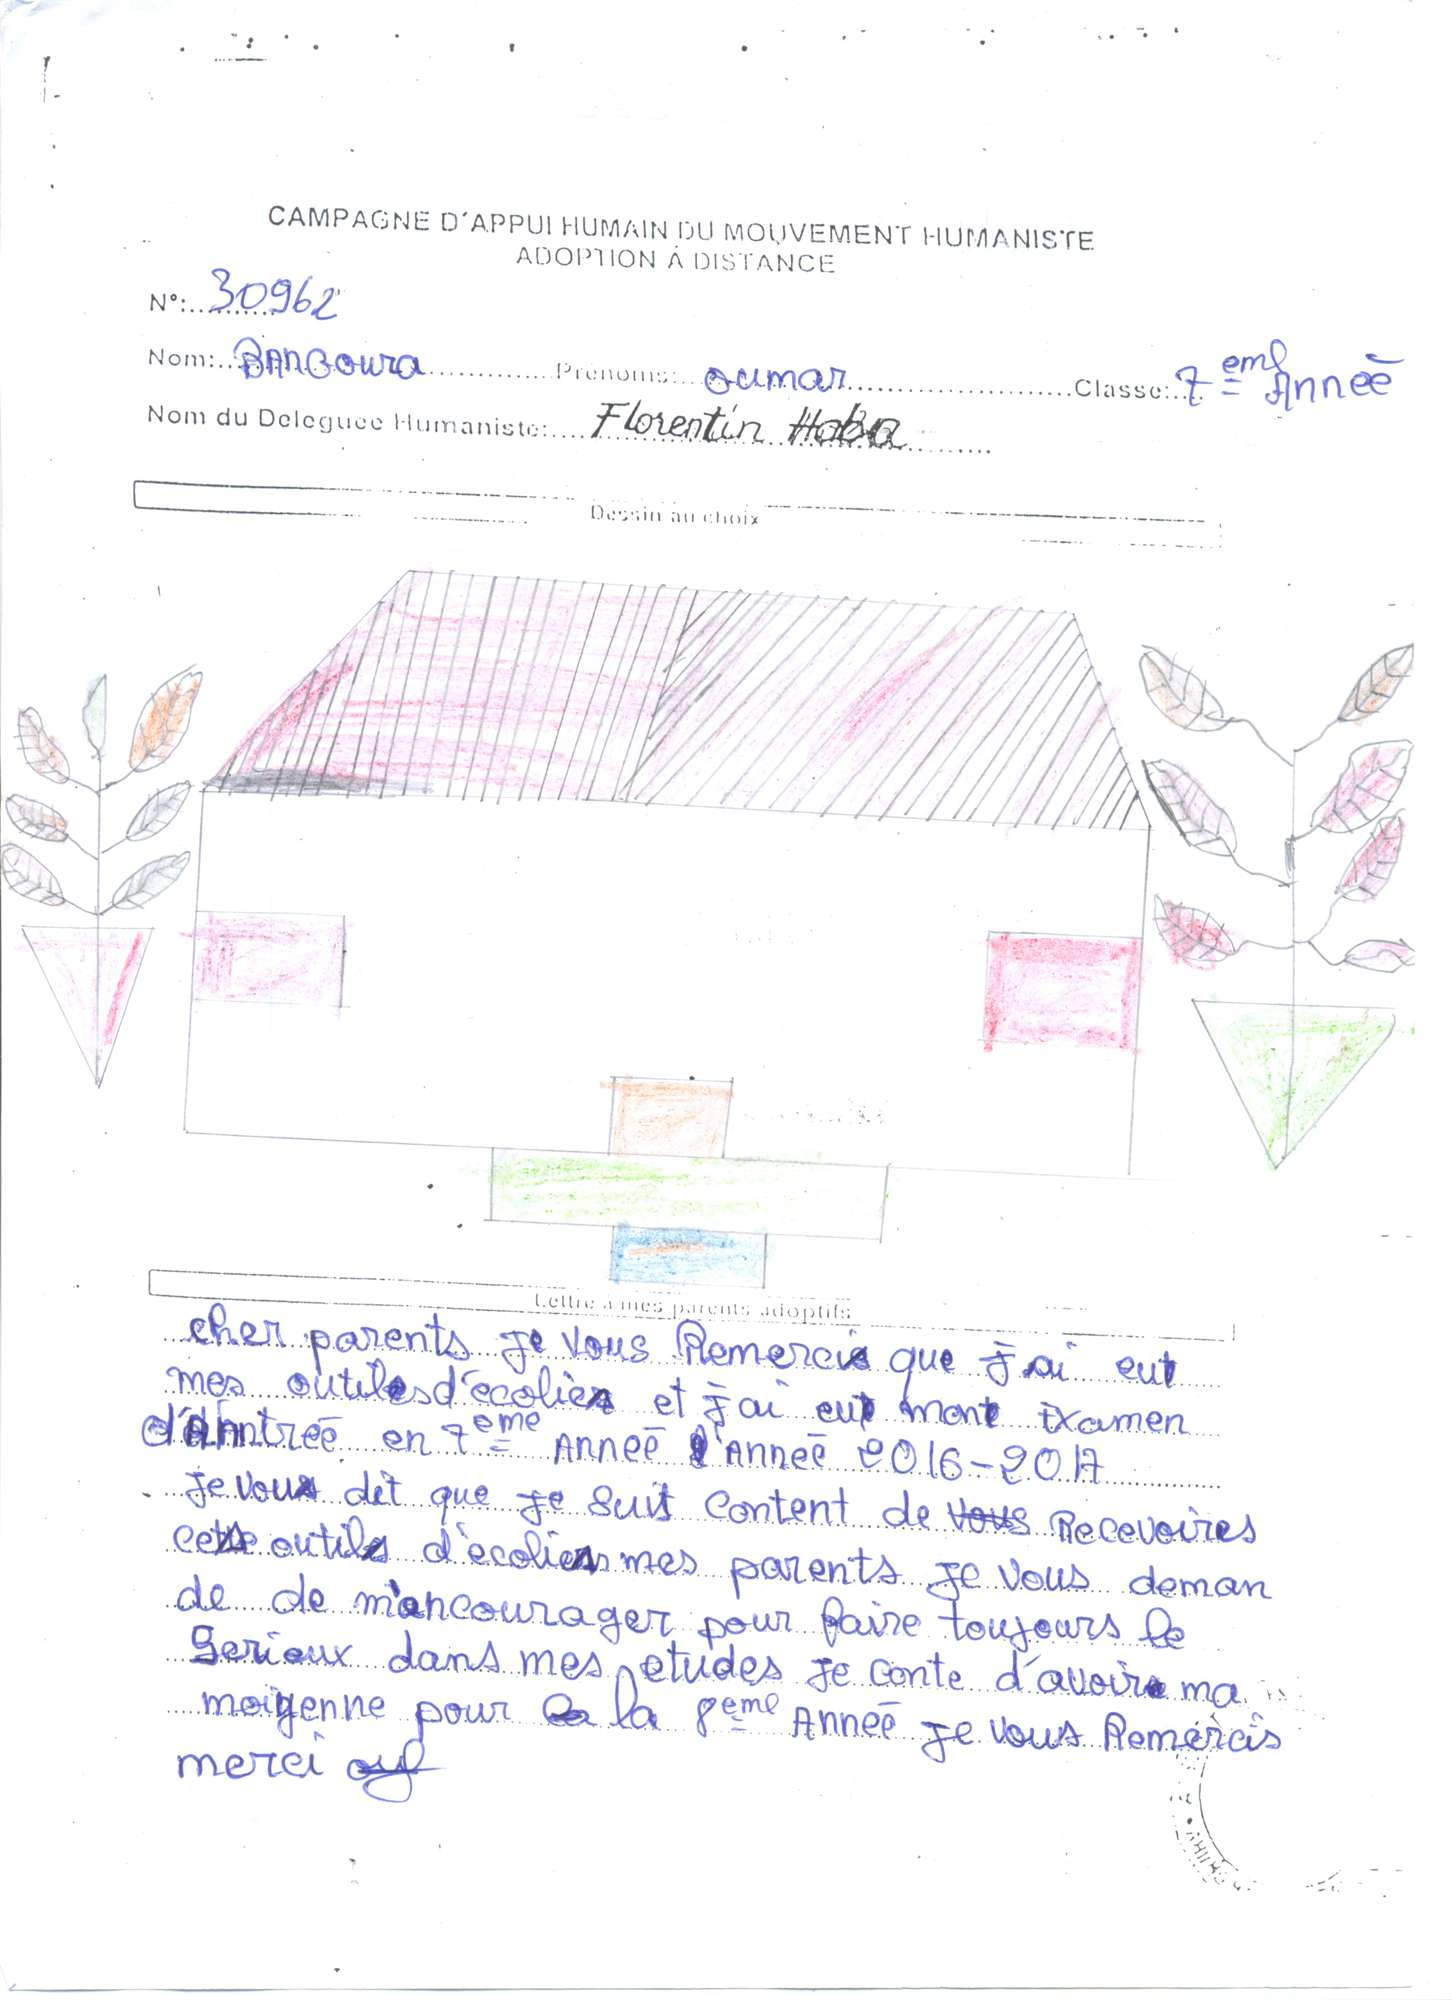 CAMPAGNE D'APPUI HUMAIN DU MOUVEMENT HUMANISTE
ADOPTION À DISTANCE
N°: 30962
Nom: BANGoura Prénoms: oumar Classe: 7eme Anneé
Nom du Deleguee Humaniste: Florentin Haba
Dessin au choix
Lettre a mes parents adoptifs
cher parents je vous Remercis que j'ai eut
mes outiles d'ecolier et j'ai eut mont Examen
d'Antreé en 7eme Anneé l'Anneé 2016-2017
je vous dit que je suit content de Recevoires
cette outils d'écoliers mes parents je vous deman
de de m'ancourager pour faire toujours le
Serieux dans mes etudes je conte d'avoire ma
moiyenne pour la 8eme Anneé je vous Remercis
merci